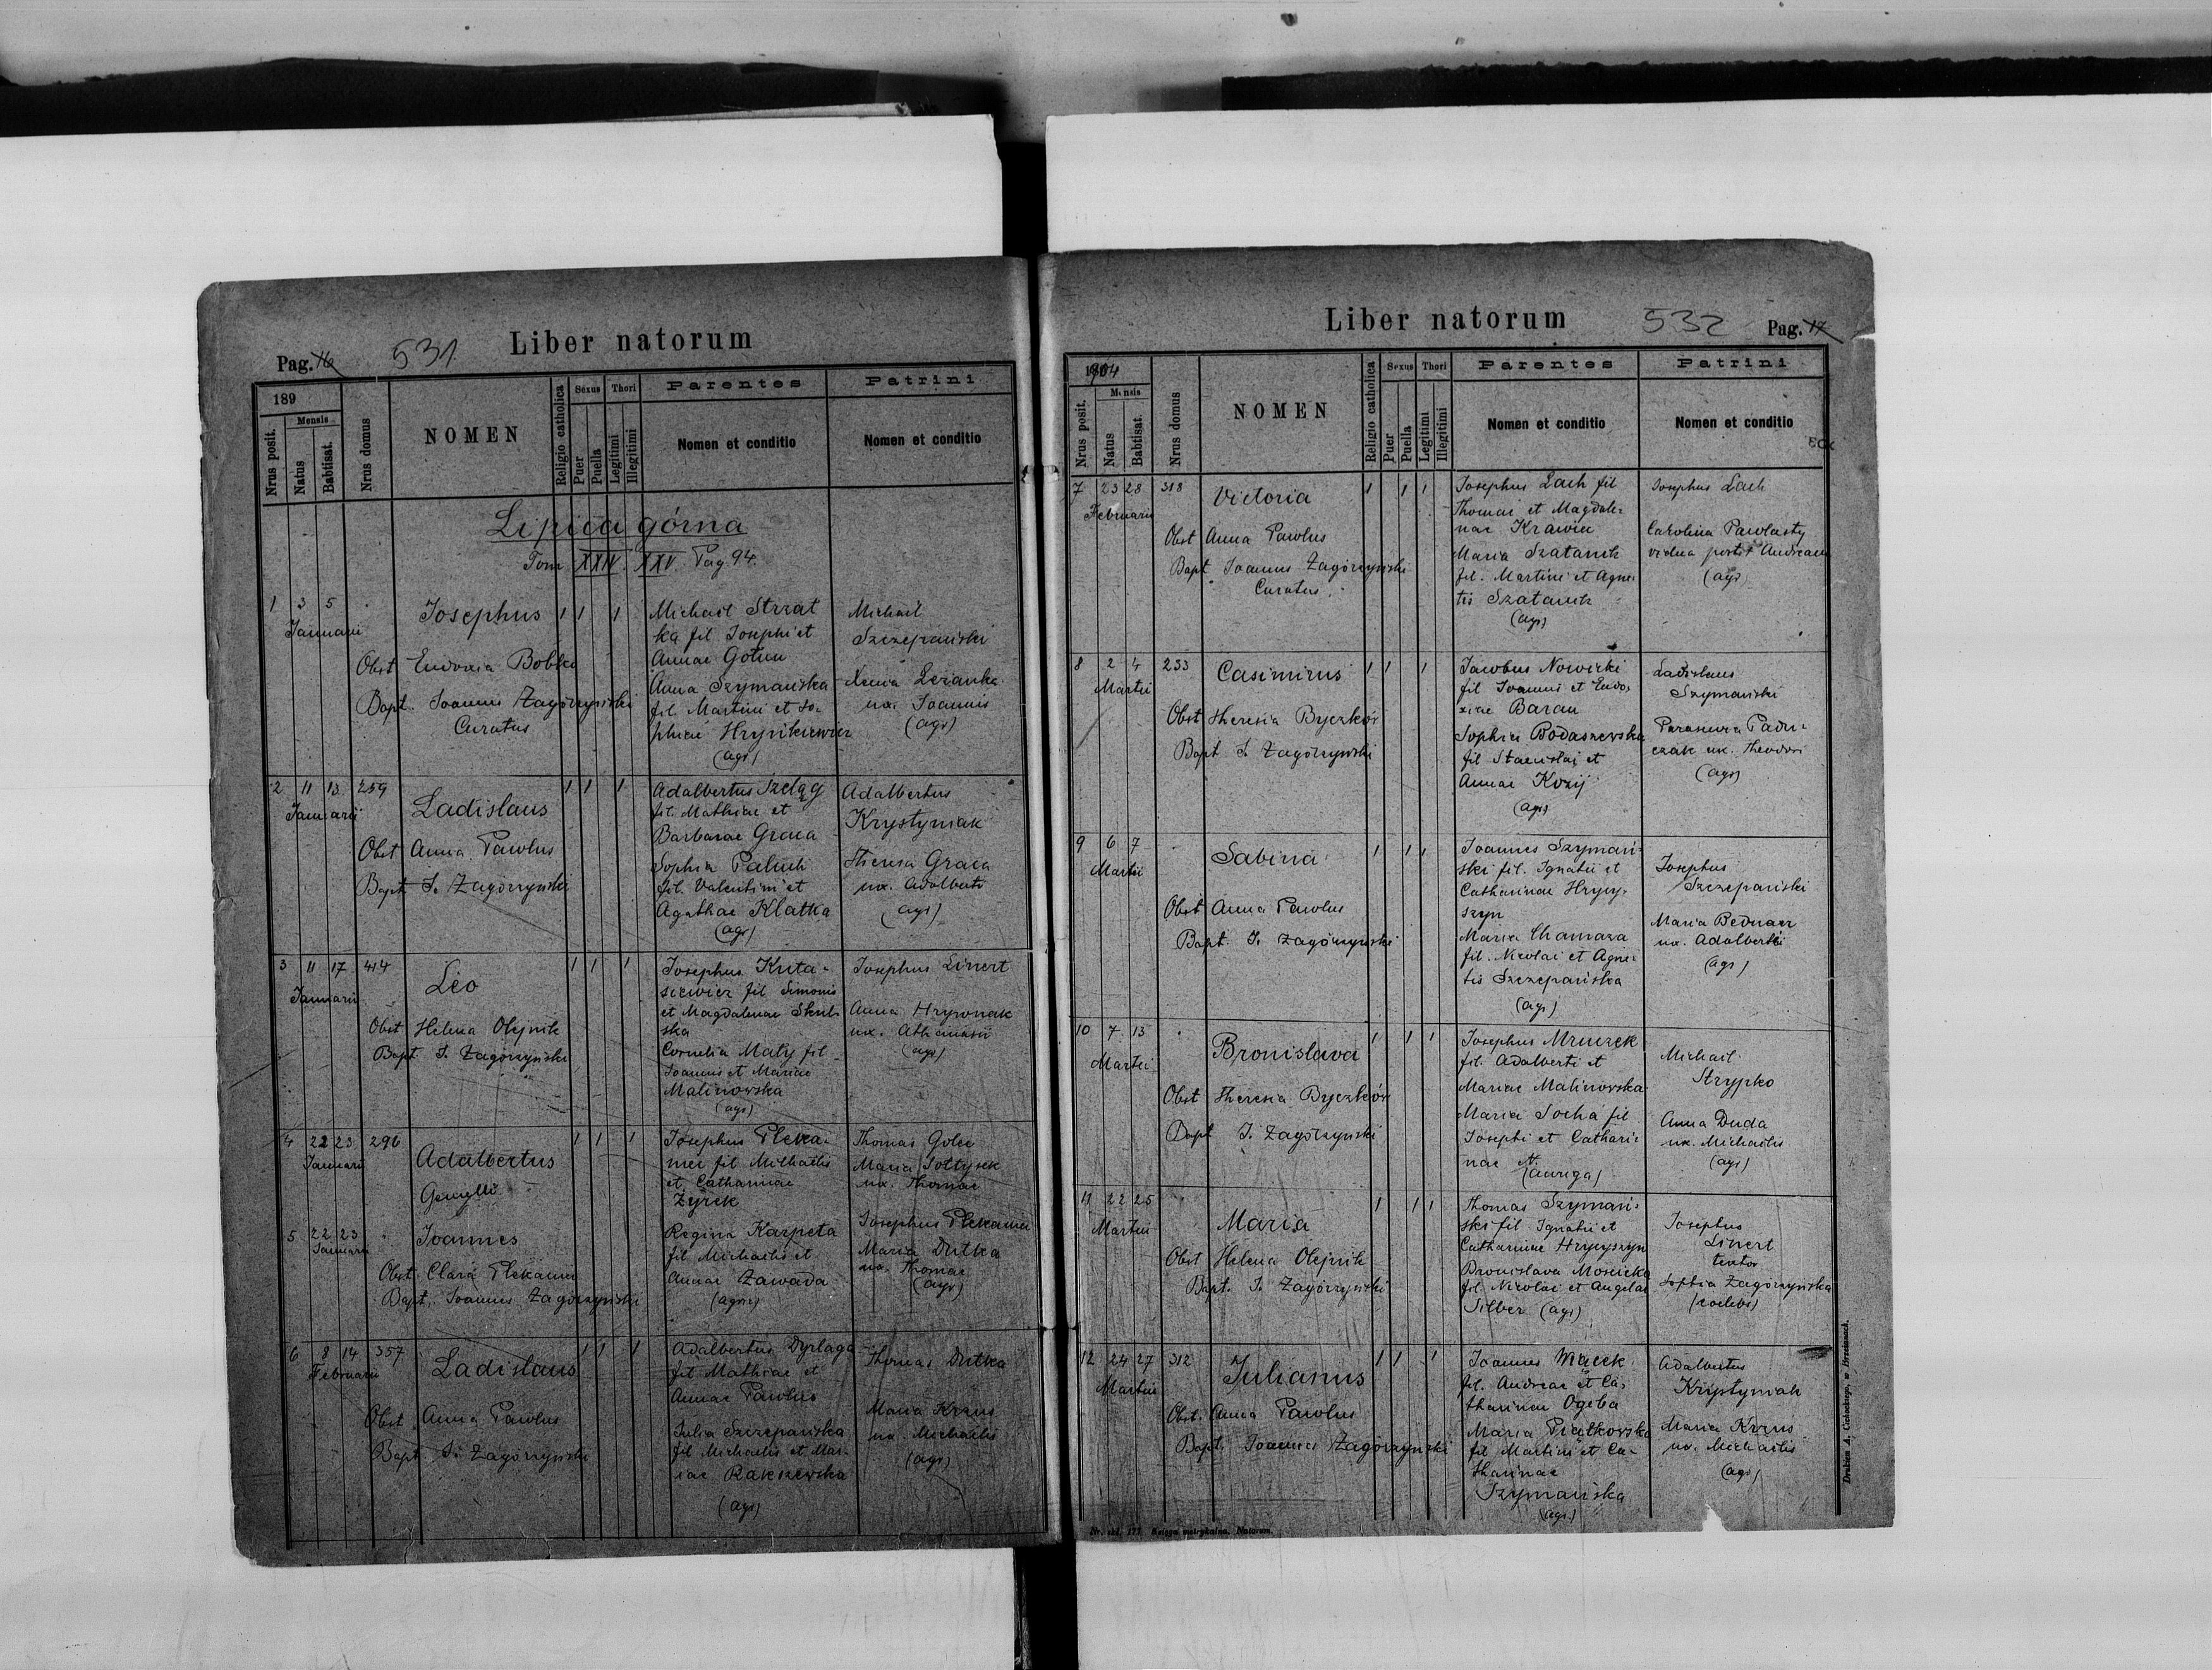 Pag. 16
531
Liber natorum
189
Mensis
Nrus posit.
Natus
Babtisat.
Nrus domus
NOMEN
Religio catholica
Sexus
Puer
Puella
Thori
Legitimi
Illegitimi
Parentes
Nomen et conditio
Patrini
Nomen et conditio
Lipica górna
Tom XXIV. XXV Pag. 94.
1 3 5
Januarii
Josephus
1 1 1
Obst Eudoxia Bobko
Bapt. Joannes Zagórzyński
Curatus
Michael Strzat
ka fil Josephi et
Annae Gotun
Anna Szymańska
fil Martini et So-
phiae Hrynkiewicz
(agr)
Michael
Szczepański
Xenia Leranka
ux. Joannis
(agr)
2 11 13 259
Januarii
Ladislaus
1 1 1
Obst Anna Pawlus
Bapt J. Zagórzyński
Adalbertus Szeląg
fil. Mathiae et
Barbarae Graca
Sophia Paluch
fil. Valentini et
Agathae Klatka
(agr)
Adalbertus
Krystyniak
Theresa Graca
ux. Adalberti
(agr)
3 11 17 414
Januarii
Leo
1 1 1
Obst Helena Olejnik
Bapt. J. Zagórzyński
Josephus Kuta-
siewicz fil Simonis
et Magdalenae Skul-
ska
Cornelia Maty fil
Joannis et Mariae
Malinowska
(agr)
Josephus Linert
Anna Hrywnak
ux. Athanasii
(agr)
4 22 23 296
Januarii
Adalbertus
Gemelli
1 1 1
5 22 23
Januarii
Joannes
Obst. Clara Plekaniec
Bapt. Joannes Zagórzyński
Josephus Pleka-
niec fil Michaelis
et Catharinae
Żyrek
Regina Karpeta
fil Michaelis et
Annae Zawada
Thomas Golec
Maria Sołtysek
ux. Thomae
Josephus Plekaniec
Maria Dutka
ux. Thomae
(agr)
6 8 14 357
Februarii
Ladislaus
1 1 1
Obst Anna Pawlus
Bapt J. Zagórzyński
Adalbertus Dyrlaga
fil Mathiae et
Annae Pawlus
Julia Szczepańska
fil Michaelis et Mar-
iae Rakszewska
(agr)
Thomas Dutka
Maria Krzus
ux. Michaelis
(agr)
Liber natorum
532
Pag. 17
1904
Mensis
Nrus posit.
Natus
Babtisat.
Nrus domus
NOMEN
Religio catholica
Sexus
Puer
Puella
Thori
Legitimi
Illegitimi
Parentes
Nomen et conditio
Patrini
Nomen et conditio
7 23 28 318
Februarii
Victoria
1 1 1
Obst Anna Pawlus
Bapt Joannes Zagórzyński
Curatus.
Josephus Lach fil
Thomae et Magdale-
nae Krawiec
Maria Szatanik
fil. Martini et Agne-
tis Szatanik
(agr)
Josephus Lach
Carolina Pawlasty
vidua post † Andream
(agr)
8 2 4 233
Martii
Casimirus
1 1 1
Obst Theresia Byczkór
Bapt J. Zagórzyński
Jacobus Nowicki
fil Joannis et Eudo-
xiae Baran
Sophia Bodaszewska
fil Stanislai et
Annae Kozij
(agr)
Ladislaus
Szymański
ux. Theodori
(agr)
9 6 7
Martii
Sabina
1 1 1
Obst Anna Pawlus
Bapt. J. Zagórzyński
Joannes Szymań-
ski fil. Ignatii et
Catharinae Hrycy-
szyn
Maria Chamaza
fil. Nicolai et Agne-
tis Szczepańska
(agr)
Josephus
Szczepański
Maria Bednarz
ux. Adalberti
(agr)
10 7 13
Martii
Bronislava
1 1 1
Obst Theresia Byczkór
Bapt J. Zagórzyński
Josephus Mruczek
fil. Adalberti et
Mariae Malinowska
Maria Socha fil
Josephi et Cathari-
nae N.
(auriga)
Michael
Strypko
Anna Duda
ux. Michaelis
(agr)
11 22 25
Martii
Maria
1 1 1
Obst Helena Olejnik
Bapt. J. Zagórzyński
Thomas Szymań-
ski fil. Ignatii et
Catharinae Hrycyszyn
Bronislava Mościcka
fil. Nicolai et Angelae
Silber (agr)
Josephus
Linert
textor
Sophia Zagórzyńska
(coelebs)
12 24 27 312
Martii
Julianus
1 1 1
Obst. Anna Pawlus
Bapt. Joannes Zagórzyński
Joannes Wącek
fil. Andreae et Ca-
tharinae Ogeba
Maria Piątkowska
fil Martini et Ca-
tharinae
Szymańska
(agr.)
Adalbertus
Krystyniak
Maria Krzus
ux. Michaelis
(agr)
Nr. skl. 177. Księga metrykalna. Natorum.
Drukiem A. Cichockego, w Brzeżanach.